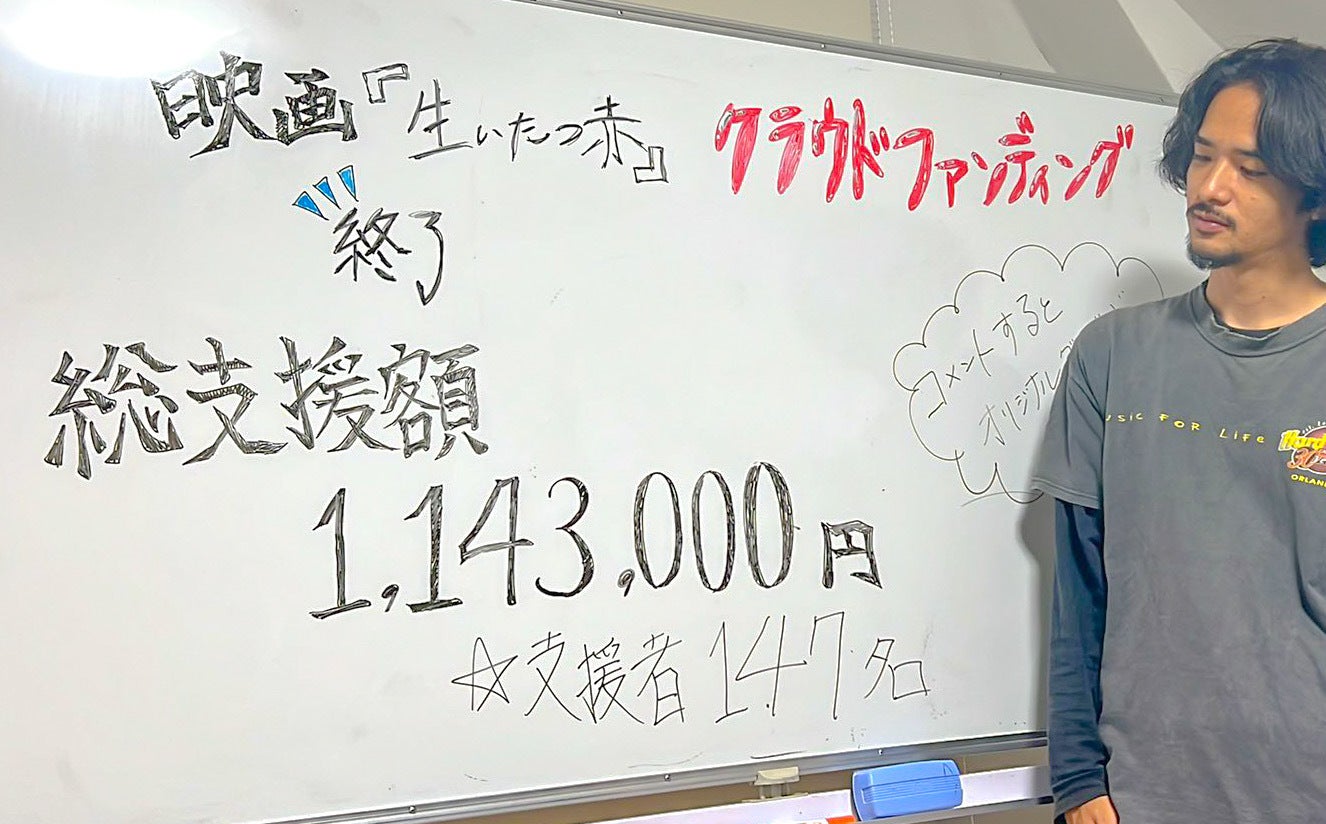 映画『生いたつ赤』 クラウドファンディング
終了
総支援額
1,143,000円
☆支援者 147名
コメントすると
オリジナル
MUSIC FOR LIFE
Hard
30
ORLAN